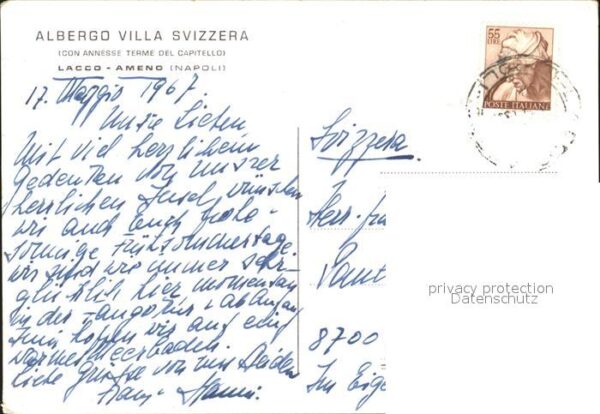 ALBERGO VILLA SVIZZERA
(CON ANNESSE TERME DEL CAPITELLO)
LACCO - AMENO (NAPOLI)
55
LIRE
POSTE ITALIANE
17. Maggio 1967.
Unsre Lieben
Mit viel herzlichem
Gedenken von unsrer
herrlichen Insel wünschen
wir auch Euch frohe
sonnige Frühsommertage.
wir sind wie immer sehr
glücklich hier momentan
in der Fangokur u. ab Anfang
Juni hoffen wir auf ein
warmes Meerbaden.
Liebe Grüsse von uns Beiden
Hanni.
Svizzera.
Herr
8700
Im
privacy protection
Datenschutz